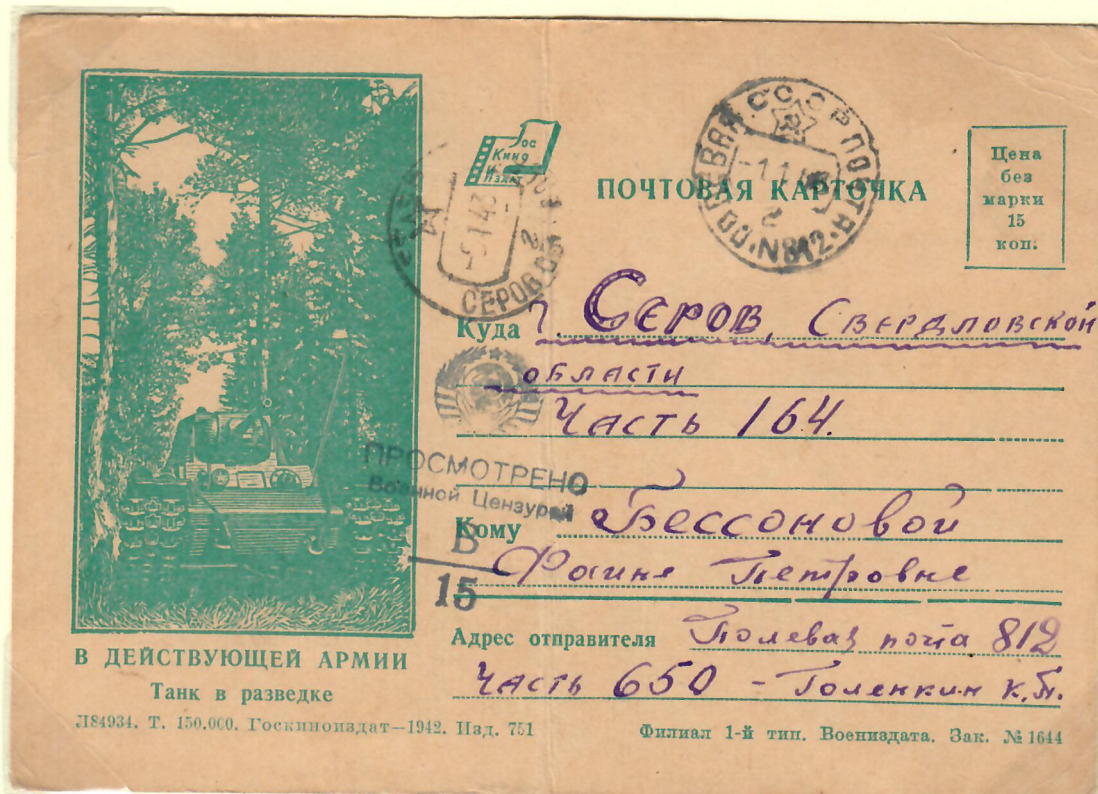 Гос
Кино
Издат
ПОЧТОВАЯ КАРТОЧКА
Цена
без
марки
15
коп.
ПОЛЕВАЯ ПОЧТА N812
СССР
СЕРОВ
Куда г. Серов, Свердловской
области
Часть 164.
ПРОСМОТРЕНО
Военной Цензурой
15
Кому Бессоновой
Фаине Петровне
Адрес отправителя Полевая почта 812
Часть 650 - Голенкин К.П.
В ДЕЙСТВУЮЩЕЙ АРМИИ
Танк в разведке
Л84934. Т. 150.000. Госкиноиздат—1942. Изд. 751
Филиал 1-й тип. Воениздата. Зак. № 1644